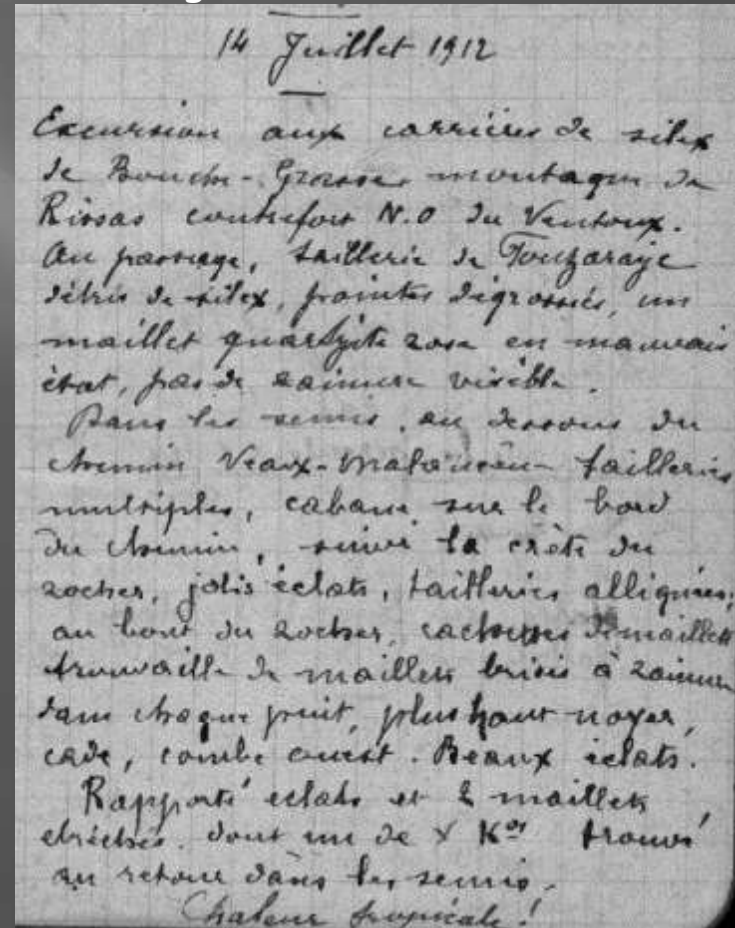 14 Juillet 1912
Excursion aux carrières de silex
de Bouche-Grosse, montagne de
Rissas contrefort N.O du Ventoux.
Au passage, taillerie de
détris de silex, pointes dégrossies, un
maillet quartzite rose en mauvais
état, pas de rainure visible.
Dans les semis, au dessous du
chemin Veaux-Malaucène tailleries
multiples, cabane sur le bord
du chemin, suivi la crête du
rocher, jolis éclats, tailleries allignées,
au bout du rocher, de maillets
trouvaille de maillets brisés à rainure
dans chaque puit, plus haut noyer,
cade, combe ouest. Beaux éclats.
Rapporté éclats et 2 maillets
ébréchés, dont un de Kos trouvé
au retour dans les semis.
Chaleur tropicale!